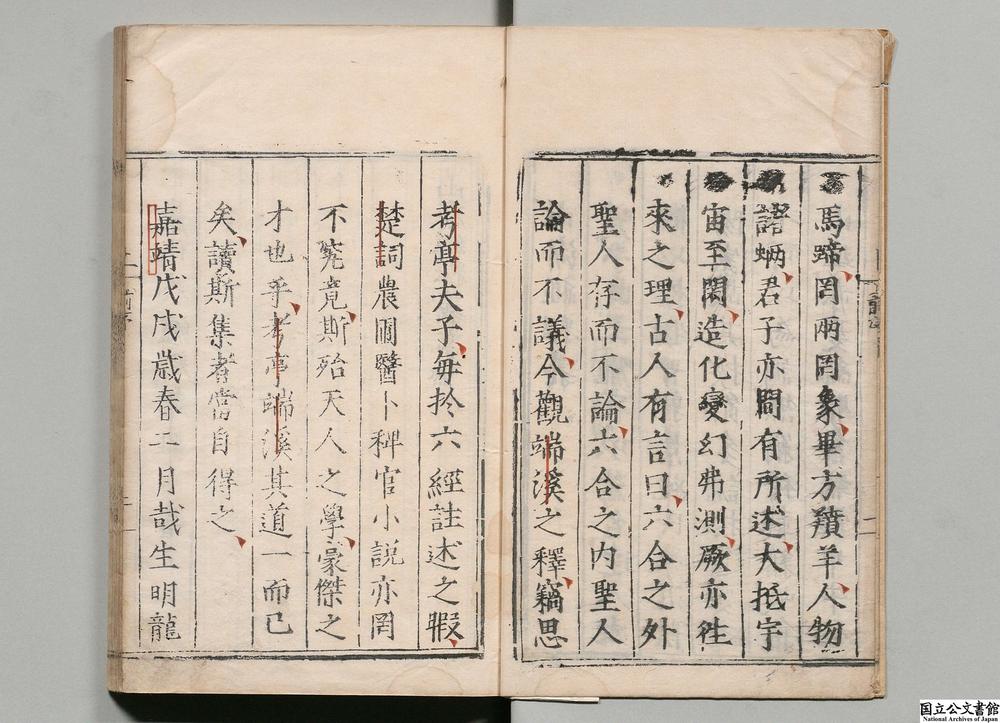 馬蹄罔兩罔象畢方羵羊人物
諸蛃君子亦間有所述大抵宇
宙至闊造化變幻弗測厥亦徃
來之理古人有言曰六合之外
聖人存而不論六合之内聖人
論而不議今觀端溪之釋竊思
考亭夫子每扵六經註述之暇
楚詞農圃醫卜稗官小説亦罔
不究竟斯殆天人之學豪傑之
才也乎考亭端溪其道一而已
矣讀斯集者當自得之
嘉靖戊戌歳春二月哉生明龍
国立公文書館
National Archives of Japan